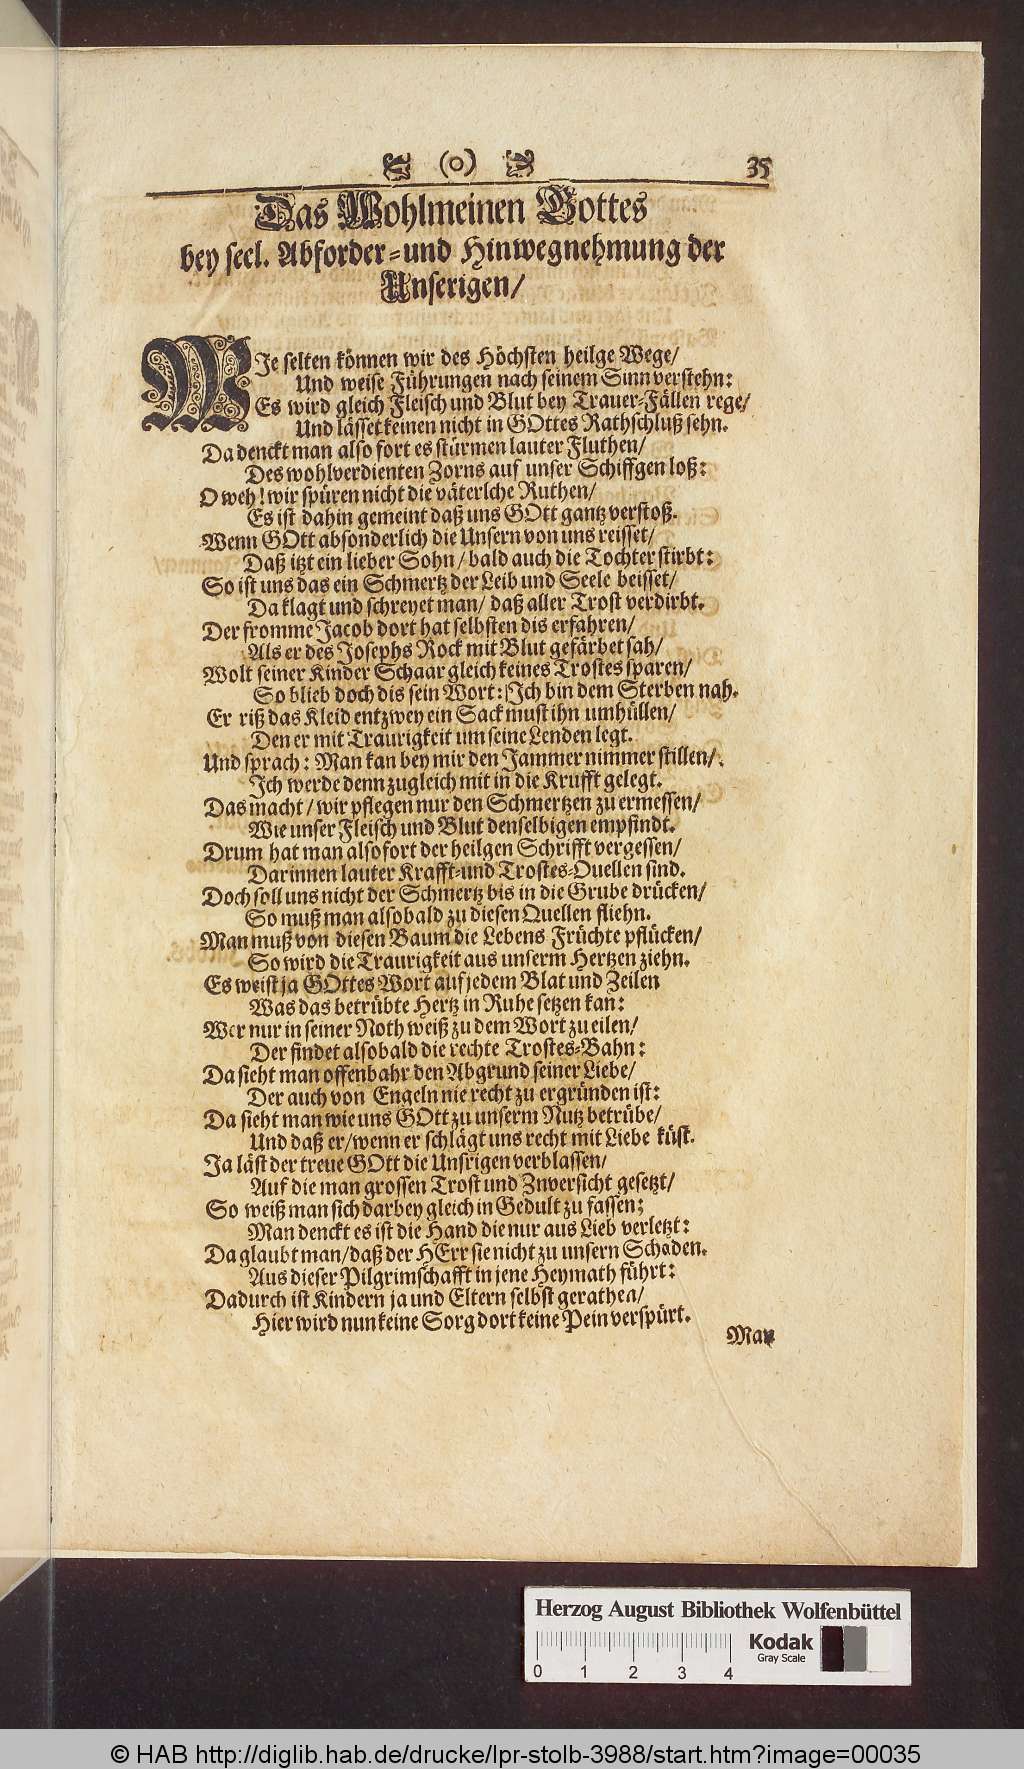 (o) 35
Das Wohlmeinen Gottes
bey seel. Abforder=und Hinwegnehmung der
Unserigen/
WIe selten können wir des Höchsten heilge Wege/
Und weise Führungen nach seinem Sinn verstehn:
Es wird gleich Fleisch und Blut bey Trauer-Fällen rege/
Und lässet keinen nicht in GOttes Rathschluß sehn.
Da denckt man also fort es stürmen lauter Fluthen/
Des wohlverdienten Zorns auf unser Schiffgen loß:
O weh! wir spüren nicht die väterlche Ruthen/
Es ist dahin gemeint daß uns GOtt gantz verstoß.
Wenn GOtt absonderlich die Unsern von uns reisset/
Daß itzt ein lieber Sohn/ bald auch die Tochter stirbt:
So ist uns das ein Schmertz der Leib und Seele beisset/
Da klagt und schreyet man/ daß aller Trost verdirbt.
Der fromme Jacob dort hat selbsten dis erfahren/
Als er des Josephs Rock mit Blut gefärbet sah/
Wolt seiner Kinder Schaar gleich keines Trostes sparen/
So blieb doch dis sein Wort: Ich bin dem Sterben nah.
Er riß das Kleid entzwey ein Sack must ihn umhüllen/
Den er mit Traurigkeit um seine Lenden legt.
Und sprach: Man kan bey mir den Jammer nimmer stillen/
Ich werde denn zugleich mit in die Krufft gelegt.
Das macht/ wir pflegen nur den Schmertzen zu ermessen/
Wie unser Fleisch und Blut denselbigen empfindt.
Drum hat man alsofort der heilgen Schrifft vergessen/
Darinnen lauter Krafft-und Trostes-Quellen sind.
Doch soll uns nicht der Schmertz bis in die Grube drücken/
So muß man alsobald zu diesen Quellen fliehn.
Man muß von diesen Baum die Lebens Früchte pflücken/
So wird die Traurigkeit aus unserm Hertzen ziehn.
Es weist ja GOttes Wort auf jedem Blat und Zeilen
Was das betrübte Hertz in Ruhe setzen kan:
Wer nur in seiner Noth weiß zu dem Wort zu eilen/
Der findet alsobald die rechte Trostes-Bahn:
Da sieht man offenbahr den Abgrund seiner Liebe/
Der auch von Engeln nie recht zu ergründen ist:
Da sieht man wie uns GOtt zu unserm Nutz betrübe/
Und daß er/ wenn er schlägt uns recht mit Liebe küst.
Ja läst der treue GOtt die Unsrigen verblassen/
Auf die man grossen Trost und Znversicht gesetzt/
So weiß man sich darbey gleich in Gedult zu fassen;
Man denckt es ist die Hand die nur aus Lieb verletzt:
Da glaubt man/ daß der HErr sie nicht zu unsern Schaden.
Aus dieser Pilgrimschafft in jene Heymath führt:
Dadurch ist Kindern ja und Eltern selbst gerathen/
Hier wird nun keine Sorg dort keine Pein verspürt.
Man
Herzog August Bibliothek Wolfenbüttel
Kodak
Gray Scale
0 1 2 3 4
© HAB http://diglib.hab.de/drucke/lpr-stolb-3988/start.htm?image=00035